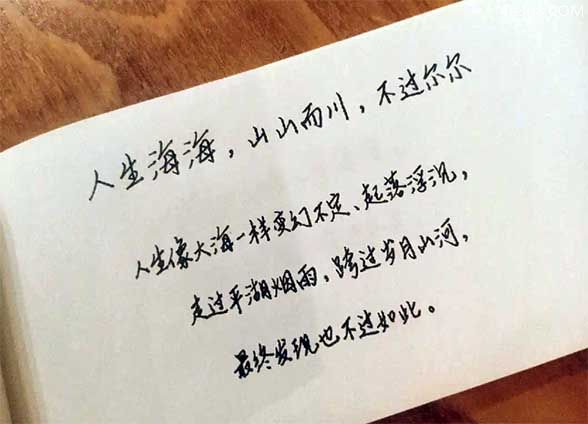 人生海海，山山而川，不过尔尔
人生像大海一样变幻不定、起落浮沉，
走过平湖烟雨，跨过岁月山河，
最终发现也不过如此。